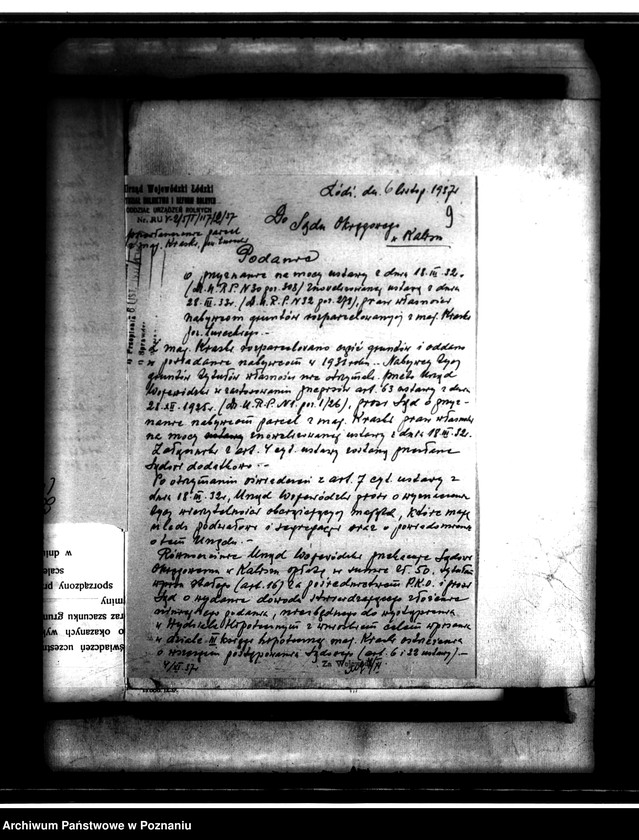 Urząd Wojewódzki Łódzki
ODDZIAŁ URZĄDZEŃ ROLNYCH
Łódź, dn. 6 listop. 1937 r.
9
Do Sądu Okręgowego
w Kaliszu
Podanie
o przyznanie na mocy ustawy z dnia 18.III.32.
(Dz.U.R.P. N30 poz. 308) znowelizowanej ustawą z dnia
28.III.33r. (Dz.U.R.P. N32 poz. 279), praw własności
nabywcom gruntów rozparcelowanych z maj. Kraski
pow. tureckiego.-
Z maj. Kraski rozparcelowano część gruntów i oddano
w posiadanie nabywcom w 1931 roku. Nabywcy tych
gruntów tytułów własności nie otrzymali. Urząd
Wojewódzki w zastosowaniu przepisów art. 63 ustawy z dnia
28.XII.1925r. (Dz.U.R.P. N1 poz. 1/26), prosi Sąd o przyz-
nanie nabywcom parcel z maj. Kraski praw własności
na mocy znowelizowanej ustawy z dnia 18.III.32.
Załączniki z art. 4 cyt. ustawy zostaną przesłane
Sądowi dodatkowo.-
Po otrzymaniu oświadczeń z art. 7 cyt. ustawy z
dnia 18.III.32r, Urząd Wojewódzki prosi o wymienienie
tych wierzytelności obciążających majątek, które mają
ulec podziałowi i segregacji oraz o powiadomienie
o tem Urzędu.-
Równocześnie Urząd Wojewódzki przekazuje Sądowi
Okręgowemu w Kaliszu opłatę w sumie zł. 50. tytułem
wpisu stałego (art. 16) za pośrednictwem P.K.O. i prosi
Sąd o wydanie dowodu stwierdzającego złożenie
niniejszego podania, niezbędnego do wystąpienia
w Wydziale Hipotecznym z wnioskiem celem wpisania
w dziale III księgi hipotecznej maj. Kraski ostrzeżenia
o wszczęciu postępowania Sądowego (art. 6 i 22 ustawy).-
4/XI.37.
Za Wojewodę
w dniu
sporządzony
gminy
oraz szacunku
o okazanych
Archiwum Państwowe w Poznaniu